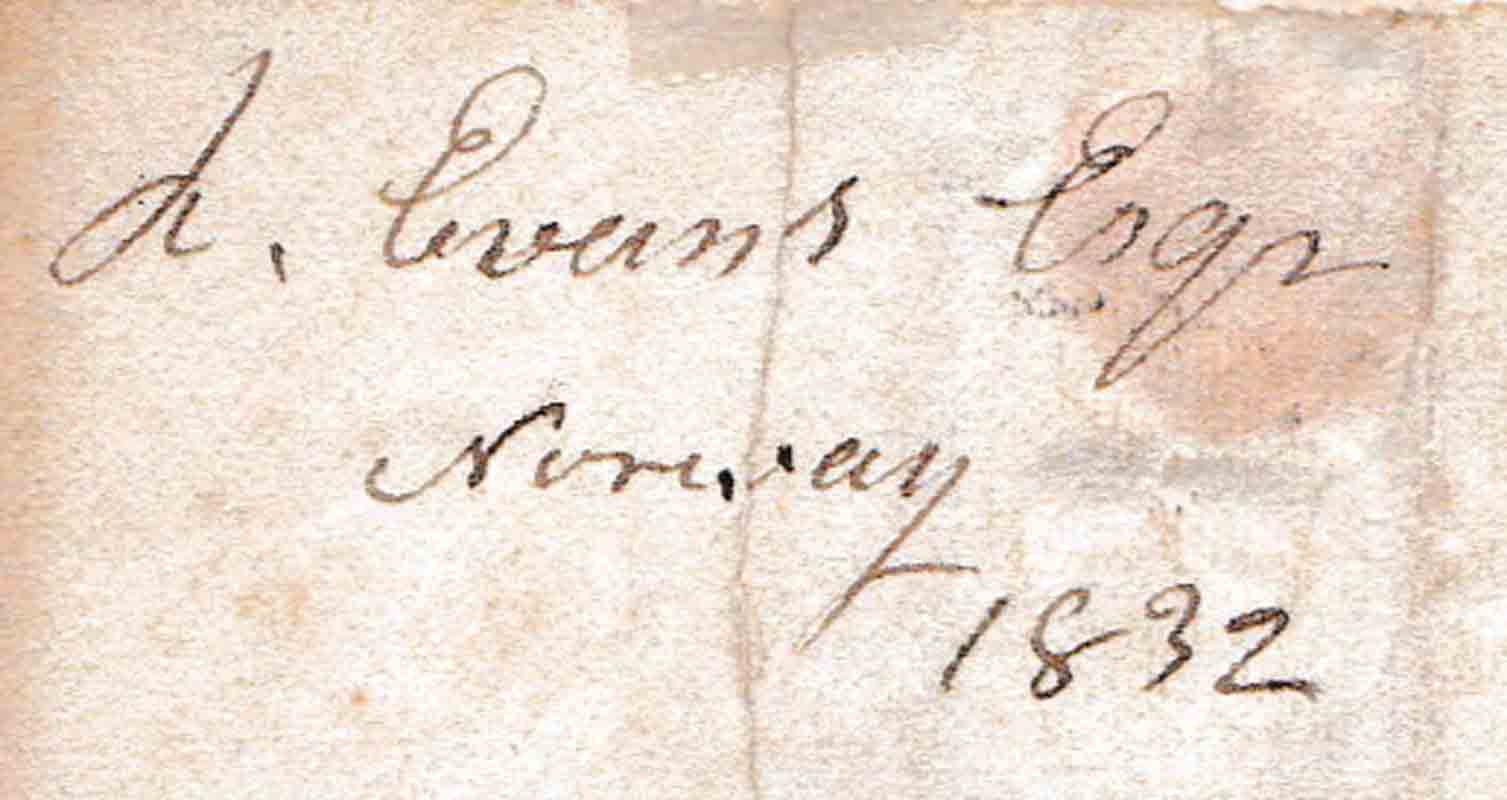 A. Evans Esqr
Norway
1832